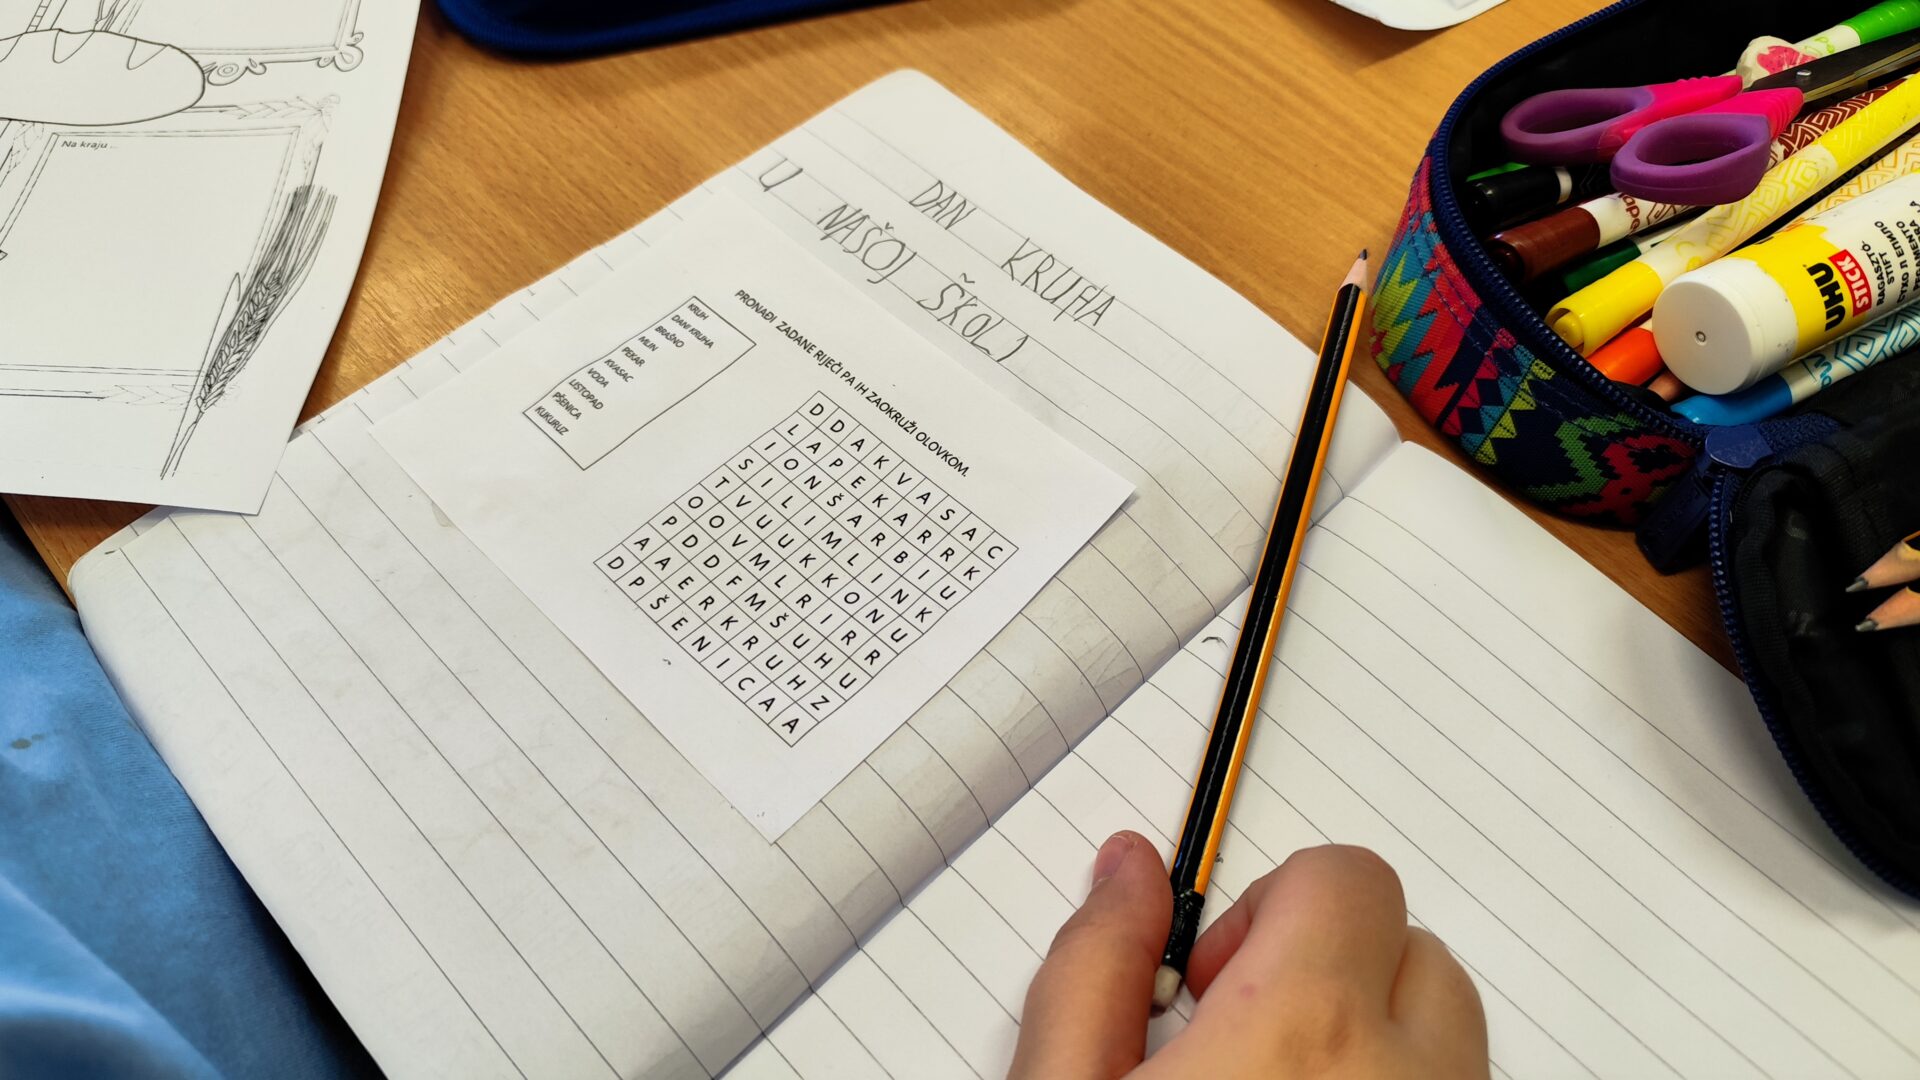 DAN KRUHA
U NAŠOJ ŠKOLI
PRONAĐI ZADANE RIJEČI PA IH ZAOKRUŽI OLOVKOM.
KRUH
DANI KRUHA
BRAŠNO
MLIN
PEKAR
KVASAC
VODA
LISTOPAD
PŠENICA
KUKURUZ
D D A K V A S A C
L A P E K A R R K
I O N Š A R B I U
S I L I M L I N K
T V U U K K O N U
O O V M L R I R R
P D D F M Š U H U
A A E R K R U H Z
D P Š E N I C A A
Na kraju ...
UHU
STICK
STIFT